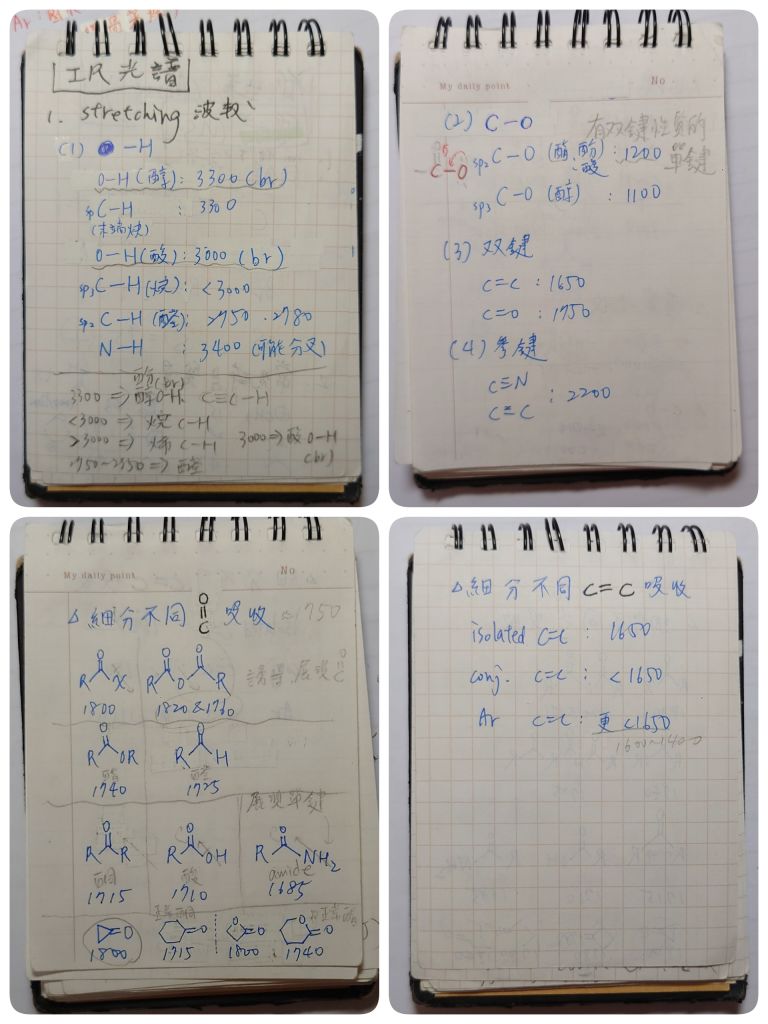 IR光譜
1. stretching 波數
(1) -H
O-H(醇): 3300(br)
sp C-H : 3300
(末端炔)
O-H(酸): 3000 (br)
sp3 C-H(烷): <3000
sp2 C-H(醛): 2750.2780
N-H : 3400 (可能分叉)
酚(br)
3300 => 醇O-H. C≡C-H
<3000 => 烷 C-H
>3000 => 烯 C-H 3000=>酸 O-H
(br)
2750~2850 => 醛
My daily point No
(2) C-O 有双键性質的
單键
C-O sp2 C-O (酯,酚,酸): 1200
sp3 C-O (醇) : 1100
(3) 双键
C=C : 1650
C=O : 1750
(4) 參键
C≡N
C≡C : 2200
My daily point No
△ 細分不同 O=C 吸收 ≈1750
R O X R O O O R 誘導.展現 O=C
1800 1820&1760
R O OR R O H
酯 醛
1740 1725
展現单键
R O R R O OH R O NH2
酮 酸 amide
1715 1710 1685
正常酮 正常酯
=O =O O =O O =O
1800 1715 1800 1740
△ 細分不同 C=C 吸收
isolated C=C : 1650
conj. C=C : <1650
Ar C=C : 更<1650
1600~1400